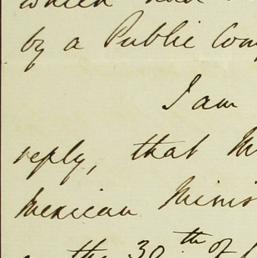 which
by a Public Com
I am
reply, that M
Mexican Minis
the 30th of